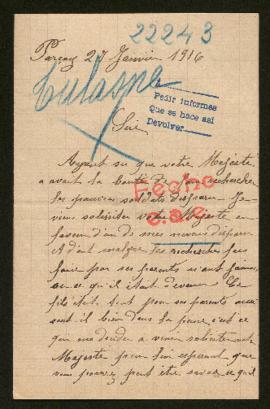 22243
Parçay 27 Janvier 1916
Pedir informes
Que se hace así
Devolver
Sire
Ayant su que votre Majesté
avait la bonté de faire rechercher
les pauvres soldats disparus je
viens solliciter votre Majesté en
faveur d'un de mes neveux disparu
malgré les recherches
Fecho
faire par ses parents n'ont jamais
su ce qu'il était devenu
fils était tout pour ses parents aussi
sont il bien dans la peine c'est ce
que me décide a venir solliciter votre
Majesté pour lui espérant que
vous pourrez peut être savoir ce qu'il